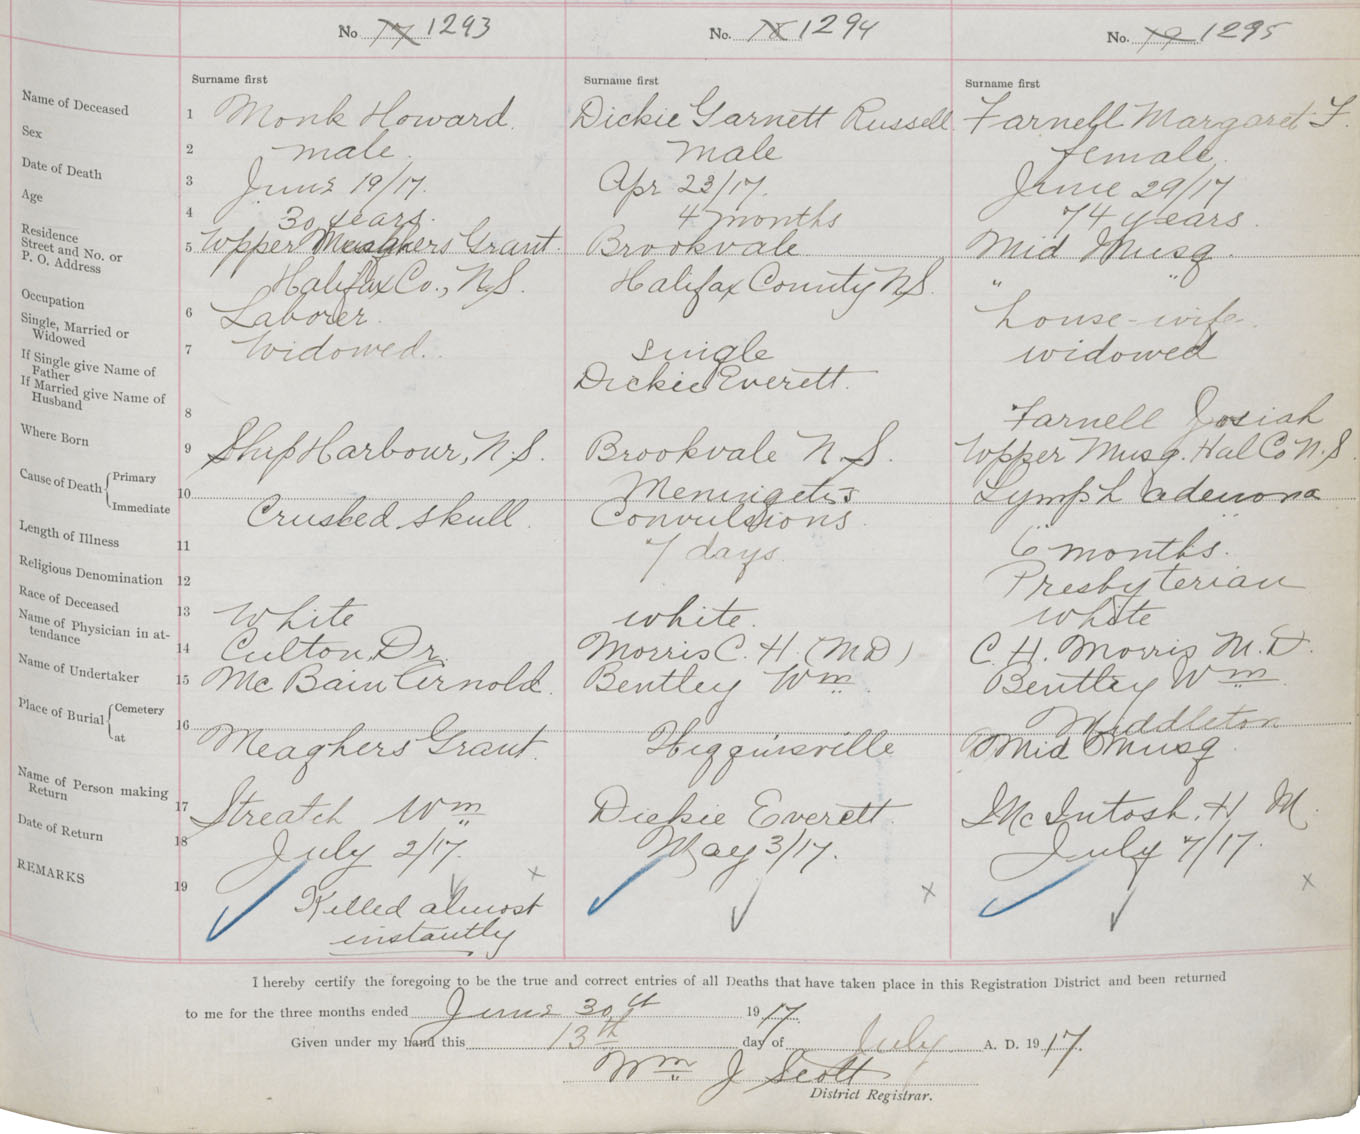 No 17 1293
No. 18 1294
No. 19 1295
Surname first
Surname first
Surname first
Name of Deceased 1 Monk Howard. Dickie Garnett Russell Farnell Margaret F.
Sex 2 male. male female.
Date of Death 3 June 19/17. Apr 23/17. June 29/17
Age 4 30 years. 4 months 74 years.
Residence
Street and No. or
P. O. Address
5 Upper Meaghers Grant. Brookvale Mid Musq.
Halifax Co., N.S. Halifax County N.S. " "
Occupation 6 Laborer. house-wife.
Single, Married or
Widowed
7 Widowed. single widowed
If Single give Name of
Father
Dickie Everett.
If Married give Name of
Husband
8 Farnell Josiah
Where Born 9 Ship Harbour, N.S. Brookvale N.S. Upper Musq. Hal Co N.S.
Cause of Death { Primary
Immediate
10 Meningetis Lymph adenoma
Crushed skull. Convulsions. " "
Length of Illness 11 7 days. 6 months.
Religious Denomination 12 Presbyterian
Race of Deceased 13 White white. white
Name of Physician in at-
tendance
14 Culton, Dr. Morris C. H. (M.D) C. H. Morris M.D.
Name of Undertaker 15 McBain Arnold. Bentley Wm Bentley Wm
Place of Burial { Cemetery
at
16 Middleton
Meaghers Grant. Higginsville Mid Musq.
Name of Person making
Return
17 Streatch Wm Dickie Everett. McIntosh, H M.
Date of Return 18 July 2/17. May 3/17. July 7/17.
REMARKS 19 x x x
Killed almost
instantly
I hereby certify the foregoing to be the true and correct entries of all Deaths that have taken place in this Registration District and been returned
to me for the three months ended June 30th 1917.
Given under my hand this 13th day of July A. D. 1917.
Wm J Scott
District Registrar.